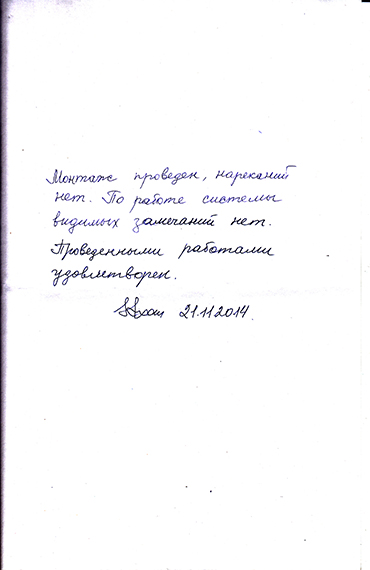 Монтаж проведен, нареканий
нет. По работе системы
видимых замечаний нет.
Проведенными работами
удовлетворен.
21.11.2014.